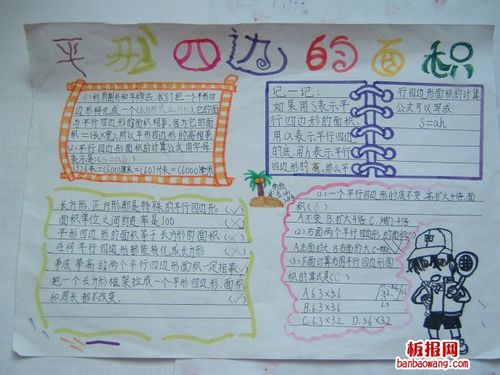 平形四边的面积
(1)利用割补和平移法,我们把一个平形四
边形转化成一个(长方形
与平行四边形的面积相等,因为它的面
=(长×宽),所以平形四边形的面积等
(2)平行四边形面积的计算公式用字母
表示是(S=ah)
记一记:
如果用S表示平
行四边形的面积
用a表示平行四边
的底,用h表示平行
四边形的高,那么平
行四边形面积的计算
公式可以写成
S=ah
长方形,正方形都是特殊的平行四边形(√)
面积单位之间的进率是100 (×)
平形四边形的面积等于长方形的面积(×)
任何平行四边形都能转化成长方形(√)
等底等高的两个平行四边形面积一定相等(√)
把一个长方形框架拉成一个平形四边形,面积
和周长都不变。(×)
(1)一个平行四边形的底不变,高扩大4倍,面
积(B)
A.不变 B.扩大4倍 C.缩小4倍
(2)右面两个平行四边形的面积
(3)下面计算右图平行四边形面
积的算式是(C)
A.6.3×3.6
B.6.3×3.6
C.6.3×3.2 D.3.6×3.2
板报网
banbaowang.com